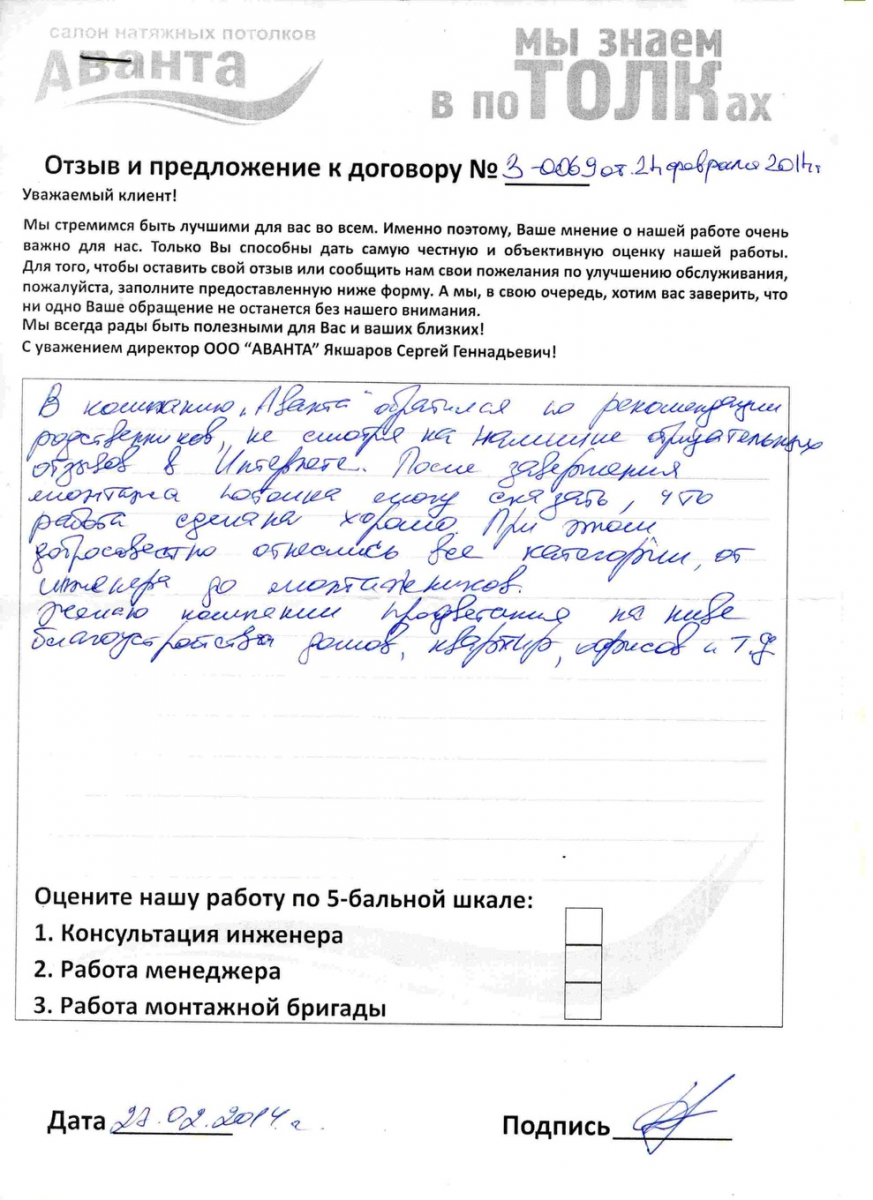 салон натяжных потолков
Аванта
мы знаем
в поТОЛКах
Отзыв и предложение к договору № 3-0069 от 24 февраля 2014г
Уважаемый клиент!
Мы стремимся быть лучшими для вас во всем. Именно поэтому, Ваше мнение о нашей работе очень
важно для нас. Только Вы способны дать самую честную и объективную оценку нашей работы.
Для того, чтобы оставить свой отзыв или сообщить нам свои пожелания по улучшению обслуживания,
пожалуйста, заполните предоставленную ниже форму. А мы, в свою очередь, хотим вас заверить, что
ни одно Ваше обращение не останется без нашего внимания.
Мы всегда рады быть полезными для Вас и ваших близких!
С уважением директор ООО “АВАНТА” Якшаров Сергей Геннадьевич!
В компанию „Аванта“ обратился по рекомендации
родственников, не смотря на наличие отрицательных
отзывов в Интернете. После завершения
монтажа потолка могу сказать, что
работа сделана хорошо. При этом
добросовестно отнеслись все категории, от
инженера до монтажников.
Желаю компании процветания на ниве
благоустройства домов, квартир, офисов и т.д
Оцените нашу работу по 5-бальной шкале:
1. Консультация инженера
2. Работа менеджера
3. Работа монтажной бригады
Дата 27.02.2014 г.
Подпись